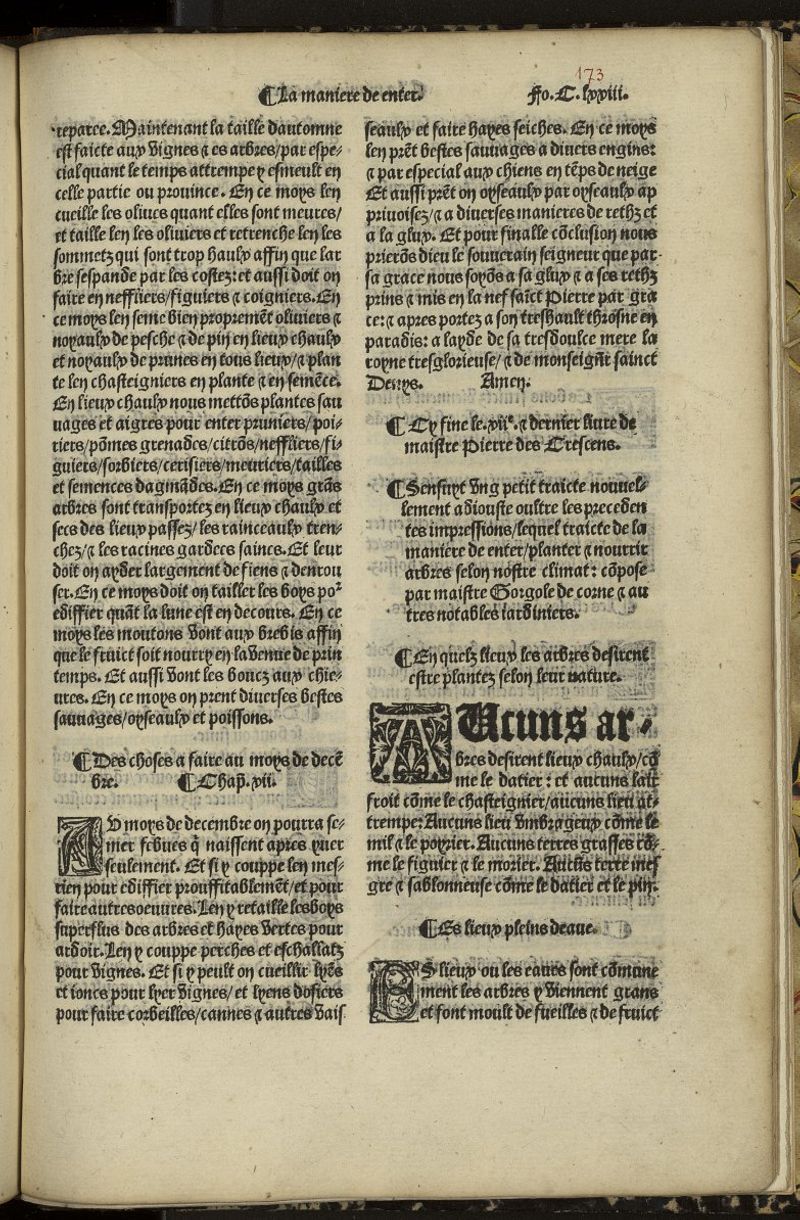 173
¶La maniere de enter. Fo.C.lxxiii.
reparee. Maintenant la taille dautomne
est faicte aux vignes ⁊ es arbres/par espe-
cial quant le temps attrempe y esmeult en
celle partie ou prouince. En ce moys len
cueille les oliues quant elles sont meures/
et taille len les oliuiers et retrenche len les
sommetz qui sont trop haulx affin que lar
bre sespande par les costez: et aussi doit on
faire en neffliers/figuiers ⁊ coigniers. En
ce moys len seme bien propremēt oliuiers ⁊
noyaulx de pesche ⁊ de pin en lieux chaulx
et noyaulx de prunes en tous lieux/⁊ plan
te len chasteigniers en plante ⁊ en semēce.
En lieux chaulx nous mettōs plantes sau
uages et aigres pour enter pruniers/poi-
riers/pōmes grenades/citrōs/neffliers/fi-
guiers/sorbiers/cerisiers/meuriers/tailles
et semences dagmādes. En ce moys grās
arbres sont transportez en lieux chaulx et
secs des lieux passez/les rainceaulx tren-
chez/⁊ les racines gardees saines. Et leur
doit on ayder largement de fiens ⁊ denrou
ser. En ce moys doit on tailler les boys poʳ
ediffier quāt la lune est en decours. En ce
moys les moutons vont aux brebis affin
que le fruict soit nourry en la venue de prin
temps. Et aussi vont les boucz aux chie-
ures. En ce moys on prent diuerses bestes
sauuages/oyseaulx et poissons.
¶Des choses a faire au moys de decē
bre. ¶Chap. xii.
AV moys de decembre on pourra se-
mer febues q̄ naissent apres yuer
seulement. Et si y couppe len mes-
rien pour ediffier prouffitablemēt/et pour
faire autres oeuures. Len y retaille les boys
superflus des arbres et hayes vertes pour
ardoir. Len y couppe perches et eschallatz
pour vignes. Et si y peult on cueillir lyēs
et ioncs pour lyer vignes/et lyens dosiers
pour faire corbeilles/cannes ⁊ autres vais
seaulx et faire hayes seiches. En ce moys
len prēt bestes sauuages a diuers engins:
⁊ par especial aux chiens en tēps de neige
Et aussi prēt on oyseaulx par oyseaulx ap
priuoisez/⁊ a diuerses manieres de rethz et
a la glux. Et pour finalle cōclusion nous
prierōs dieu le souuerain seigneur que par
sa grace nous soyōs a sa glux ⁊ a ses rethz
prins ⁊ mis en la nef saīct Pierre par gra
ce: ⁊ apres portez a son treshault throsne en
paradis: a layde de sa tresdoulce mere la
royne tresglorieuse/⁊ de monseignr̄ sainct
Denys. Amen.
¶Cy fine le .xiiᵉ. ⁊ dernier liure de
maistre Pierre des Crescens.
¶Sensuyt vng petit traicte nouuel-
lement adiouste oultre les preceden
tes impressions/lequel traicte de la
maniere de enter/planter ⁊ nourrir
arbres selon nostre climat: cōpose
par maistre Gorgole de corne ⁊ au
tres notables iardiniers.
¶En quelz lieux les arbres desirent
estre plantez selon leur nature.
AUcuns ar-
bres desirent lieux chaulx/cō
me le datier: et aucuns lair
froit cōme le chasteignier/aucuns lieu at-
trempe: Aucuns lieu vmbrageux cōme le
mil ⁊ le poyrier. Aucuns terres grasses cō-
me le figuier ⁊ le morier. Aucūs terre mes
gre ⁊ sablonneuse cōme le datier et le pin.
¶Es lieux pleins deaue.
ES lieux ou les eaues sont cōmune
ment les arbres y viennent grans
et font moult de fueilles ⁊ de fruict